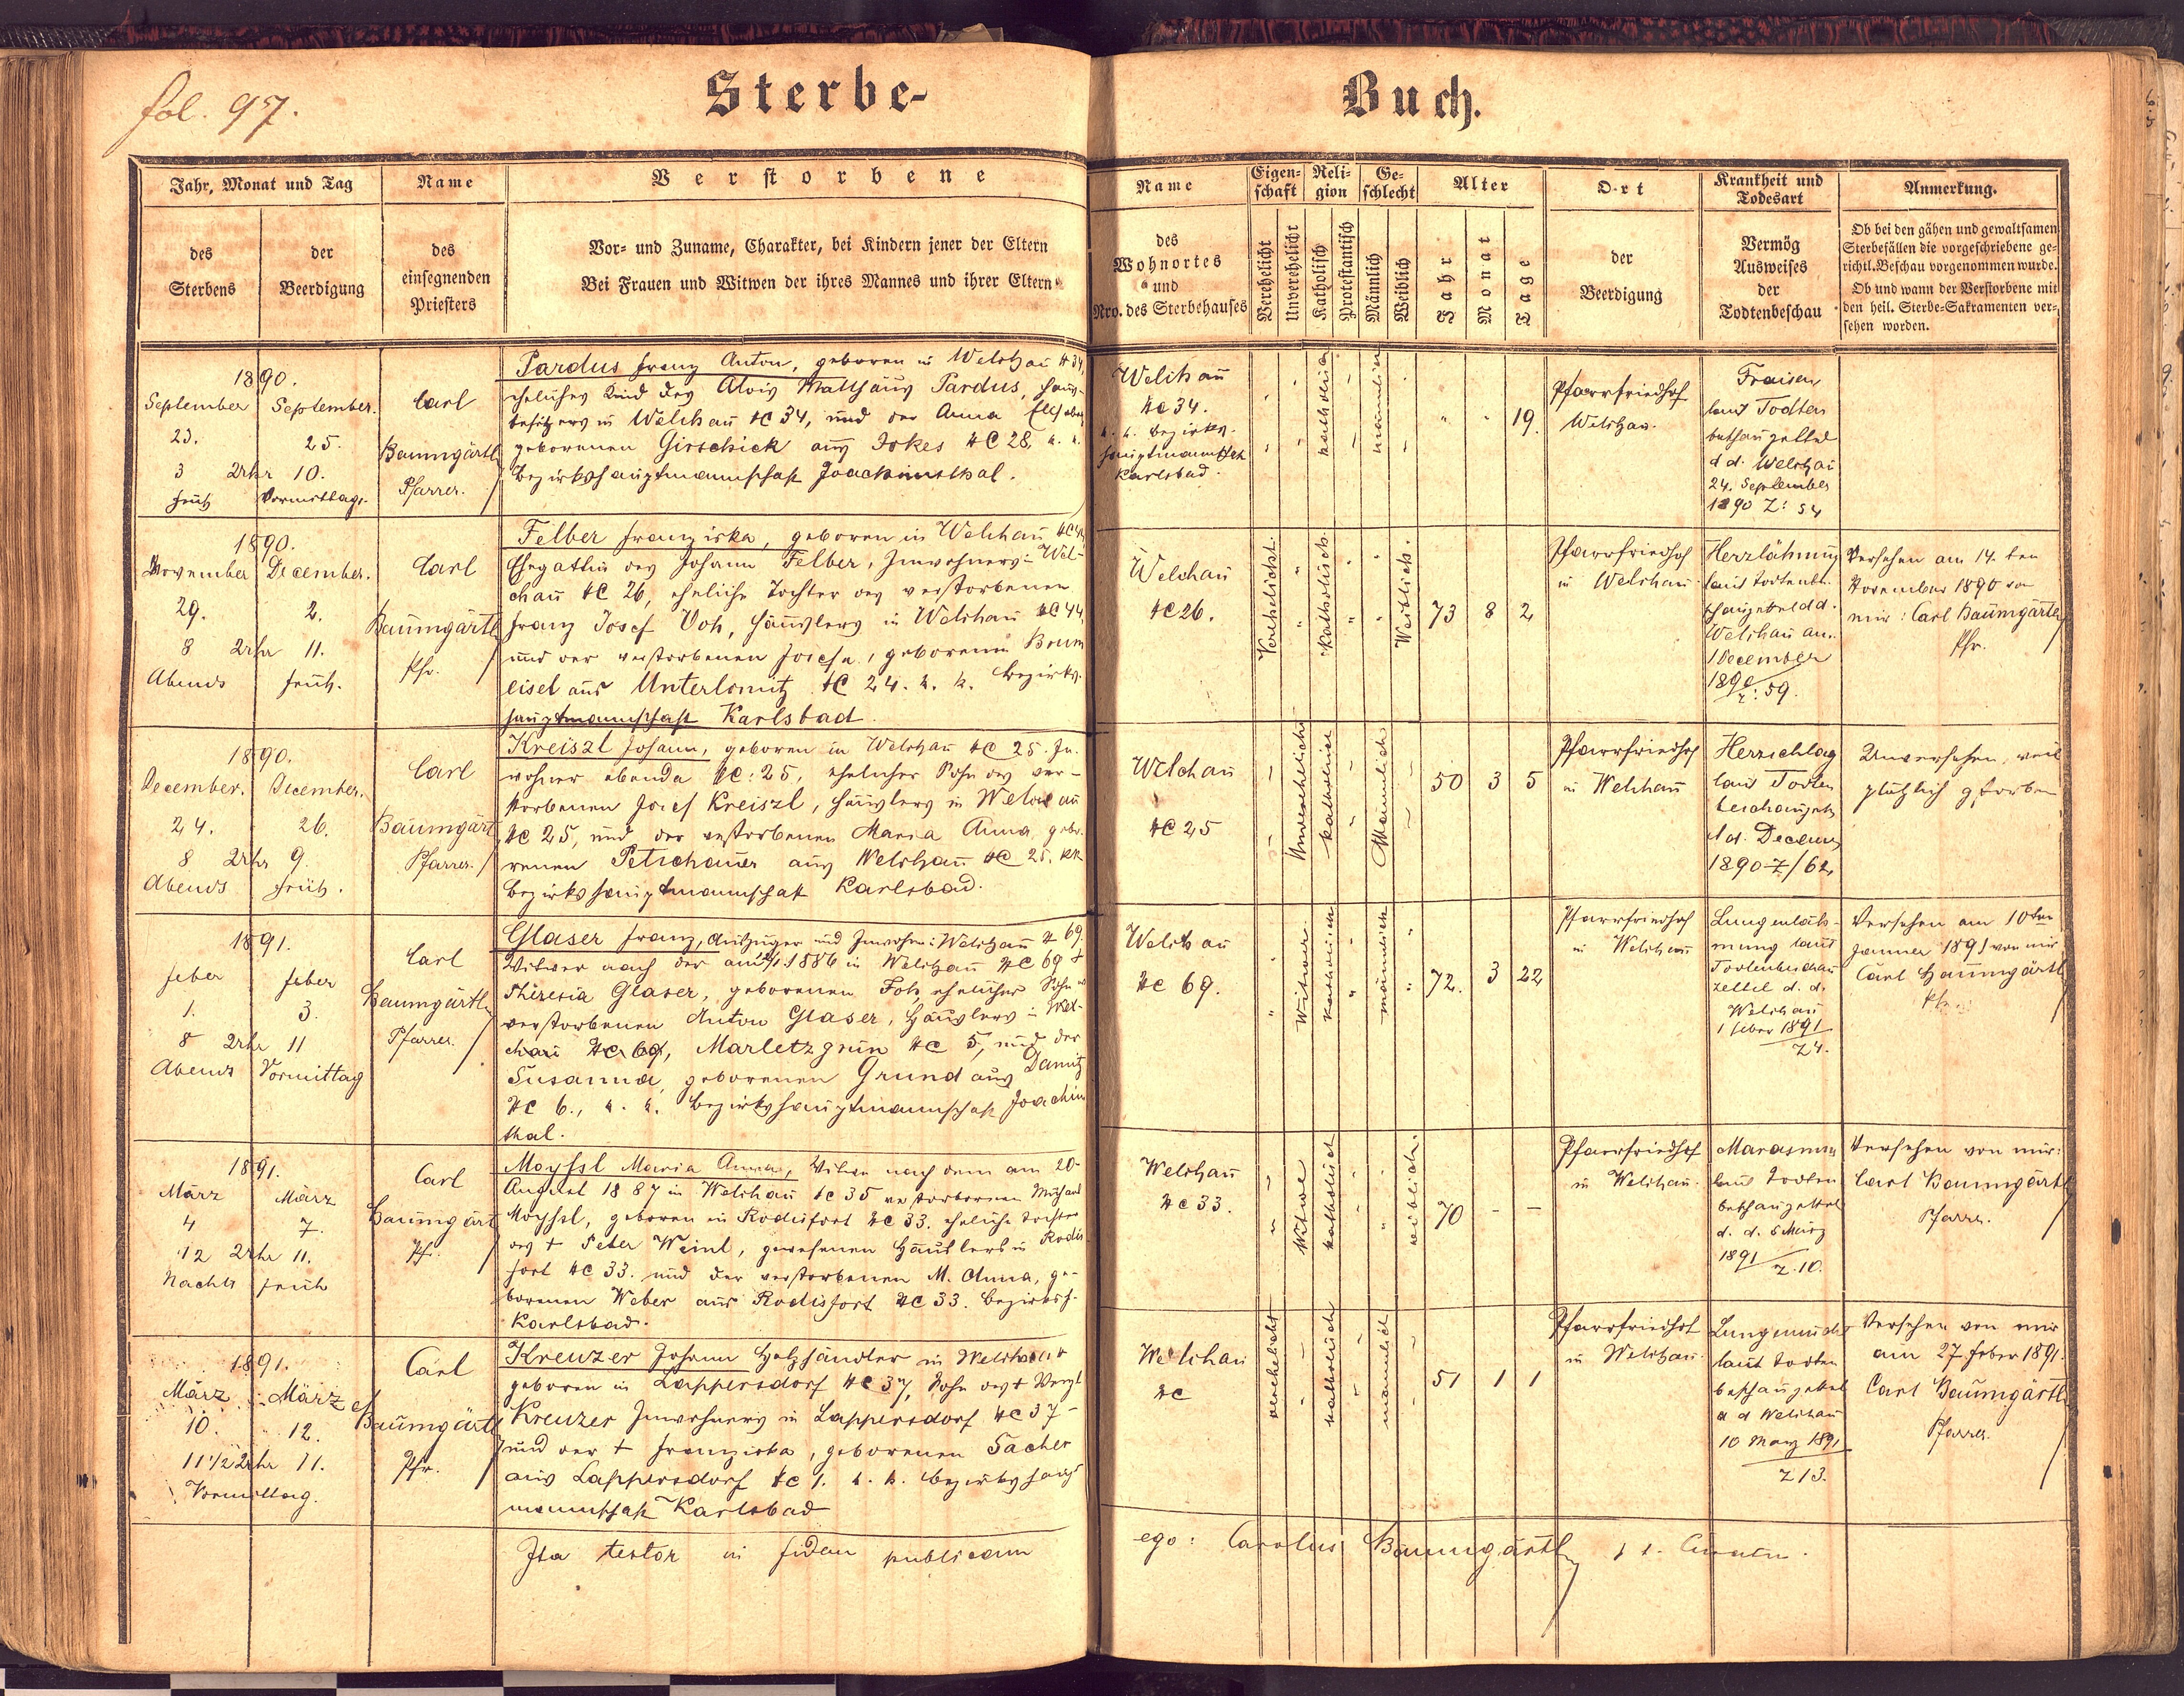 fol. 97.
Sterbe-
Buch.
Jahr, Monat und Tag
des
Sterbens
der
Beerdigung
Name
des
einsegnenden
Priesters
Verstorbene
Vor- und Zuname, Charakter, bei Kindern jener der Eltern
Bei Frauen und Witwen der ihres Mannes und ihrer Eltern
Name
des
Wohnortes
und
Nro. des Sterbehauses
Eigen-
schaft
Verehelicht
Unverehelicht
Reli-
gion
Katholisch
Protestantisch
Ge-
schlecht
Männlich
Weiblich
Alter
Jahr
Monat
Tage
Ort
der
Beerdigung
Krankheit und
Todesart
Vermög
Ausweises
der
Todtenbeschau
Anmerkung.
Ob bei den gähen und gewaltsamen
Sterbefällen die vorgeschriebene ge-
richtl. Beschau vorgenommen wurde.
Ob und wann der Verstorbene mit
den heil. Sterbe-Sakramenten ver-
sehen worden.
1890.
September
23.
3 Uhr
früh
September.
25.
10.
Vormittags.
Carl
Baumgärtl
Pfarrer.
Pardus Franz Anton, geboren in Welchau NC 34,
eheliches Kind des Alois Matthäus Pardus, Haus-
besitzers in Welchau NC 34, und der Anna
geborenen Girschick aus Jokes NC 28, k. k.
Bezirkshauptmannschaft Joachimsthal.
Welchau
NC 34.
k. k. Bezirks-
hauptmannschft
Karlsbad.
katholisch
männlich
19.
Pfarrfriedhof
Welchau.
Fraisen
laut Todten
beschauzettel
d d. Welchau
24. September
1890 Z: 54
1890.
November
29.
8 Uhr
Abends
December.
2.
11.
früh.
Carl
Baumgärtl
Pfr.
Felber Franziska, geboren in Welchau NC 44
Ehegattin des Johann Felber, Inwohners: Wel-
chau NC 26, eheliche Tochter des verstorbenen
Franz Josef Voh, Häuslers in Welchau NC 44
und der verstorbenen Josefa, geborenen Braun
eisel aus Unterlomitz NC 24. k. k. Bezirks-
hauptmannschaft Karlsbad.
Welchau
NC 26.
Verehelicht.
Katholisch.
Weiblich.
73 8 2
Pfarrfriedhof
in Welchau.
Herzlähmung
laut Todtenbe-
schauzettel d d.
Welchau am
1 December
1890
Z: 59.
Versehen am 14. ten
November 1890 von
mir: Carl Baumgärtl
Pfr.
1890.
December.
24.
8 Uhr
Abends
December.
26.
9.
früh.
Carl
Baumgärtl
Pfarrer.
Kreiszl Johann, geboren in Welchau NC 25. In-
wohner ebenda NC: 25, ehelicher Sohn des ver-
storbenen Josef Kreiszl, Häuslers in Welchau
NC 25, und der verstorbenen Maria Anna, gebo-
renen Petschauer aus Welchau NC 25. kk
Bezirkshauptmannschaft Karlsbad.
Welchau
NC 25
Unverehelicht
katholisch
Männlich
50 3 5
Pfarrfriedhof
in Welchau
Herzschlag
laut Todten
beschauzett
d d. Decemb
1890 Z/62,
Unversehen, weil
plötzlich gestorben
1891.
Feber
1.
8 Uhr
Abends
Feber
3.
11
Vormittag
Carl
Baumgärtl
Pfarrer.
Glaser Franz, Auszügler und Inwohner: Welchau N 69.
Witwer nach der am 1886 in Welchau NC 69 †
Theresia Glaser, geborenen Foh, ehelicher Sohn des
verstorbenen Anton Glaser, Häuslers in Wel-
chau NC 69, Marletzgrün NC 5, und der
Susanna, geborenen Grund aus Damitz
NC 6., k. k. Bezirkshauptmannschaft Joachims
thal.
Welchau
NC 69.
Witwer
Katholisch
männlich
72. 3 22
Pfarrfriedhof
in Welchau
Lungenläh-
mung laut
Todtenbeschau
zettel d. d.
Welchau
1 Feber 1891
Z 4.
Versehen am 10ten
Jänner 1891 von mir
Carl Baumgärtl
Pfr.
1891.
März
4
12 Uhr
Nachts
März
7.
11.
früh
Carl
Baumgärtl
Pfr.
Moyssl Maria Anna, Witwe nach dem am 20-
August 1887 in Welchau NC 35 verstorbenen Michael
Moyssl, geboren in Rodisfort NC 33. eheliche Tochter
des † Peter Weinl, gewesenen Häuslers in Rodis-
fort NC 33. und der verstorbenen M. Anna, ge-
borenen Weber aus Rodisfort NC 33. Bezirksh.
Karlsbad.
Welchau
NC 33.
Witwe
katholisch
weiblich.
70 - -
Pfarrfriedhof
in Welchau.
Marasmus
laut Todten
beschauzettel
d. d. 5 März
1891
Z. 10.
Versehen von mir:
Carl Baumgärtl
Pfarrer.
1891.
März
10.
11½ Uhr
Vormittag.
März
12.
11.
Carl
Baumgärtl
Pfr.
Kreuzer Johann Holzhändler in Welchau
geboren in Lappersdorf NC 37, Sohn des † Wenzl
Kreuzer Inwohners in Lappersdorf NC 37-
und der † Franziska, geborenen Sacher
aus Lappersdorf NC 1. k. k. Bezirkshaupt
mannschaft Karlsbad
Welchau
NC
verehelicht
katholisch
männlich
51 1 1
Pfarrfriedhof
in Welchau.
Lungensucht
laut Todten
beschauzettel
d d Welchau
10 März 1891
Z 13.
Versehen von mir
am 27. Feber 1891.
Carl Baumgärtl
Pfarrer.
Ita testor in fidem publicam
ego: Carolus Baumgärtl